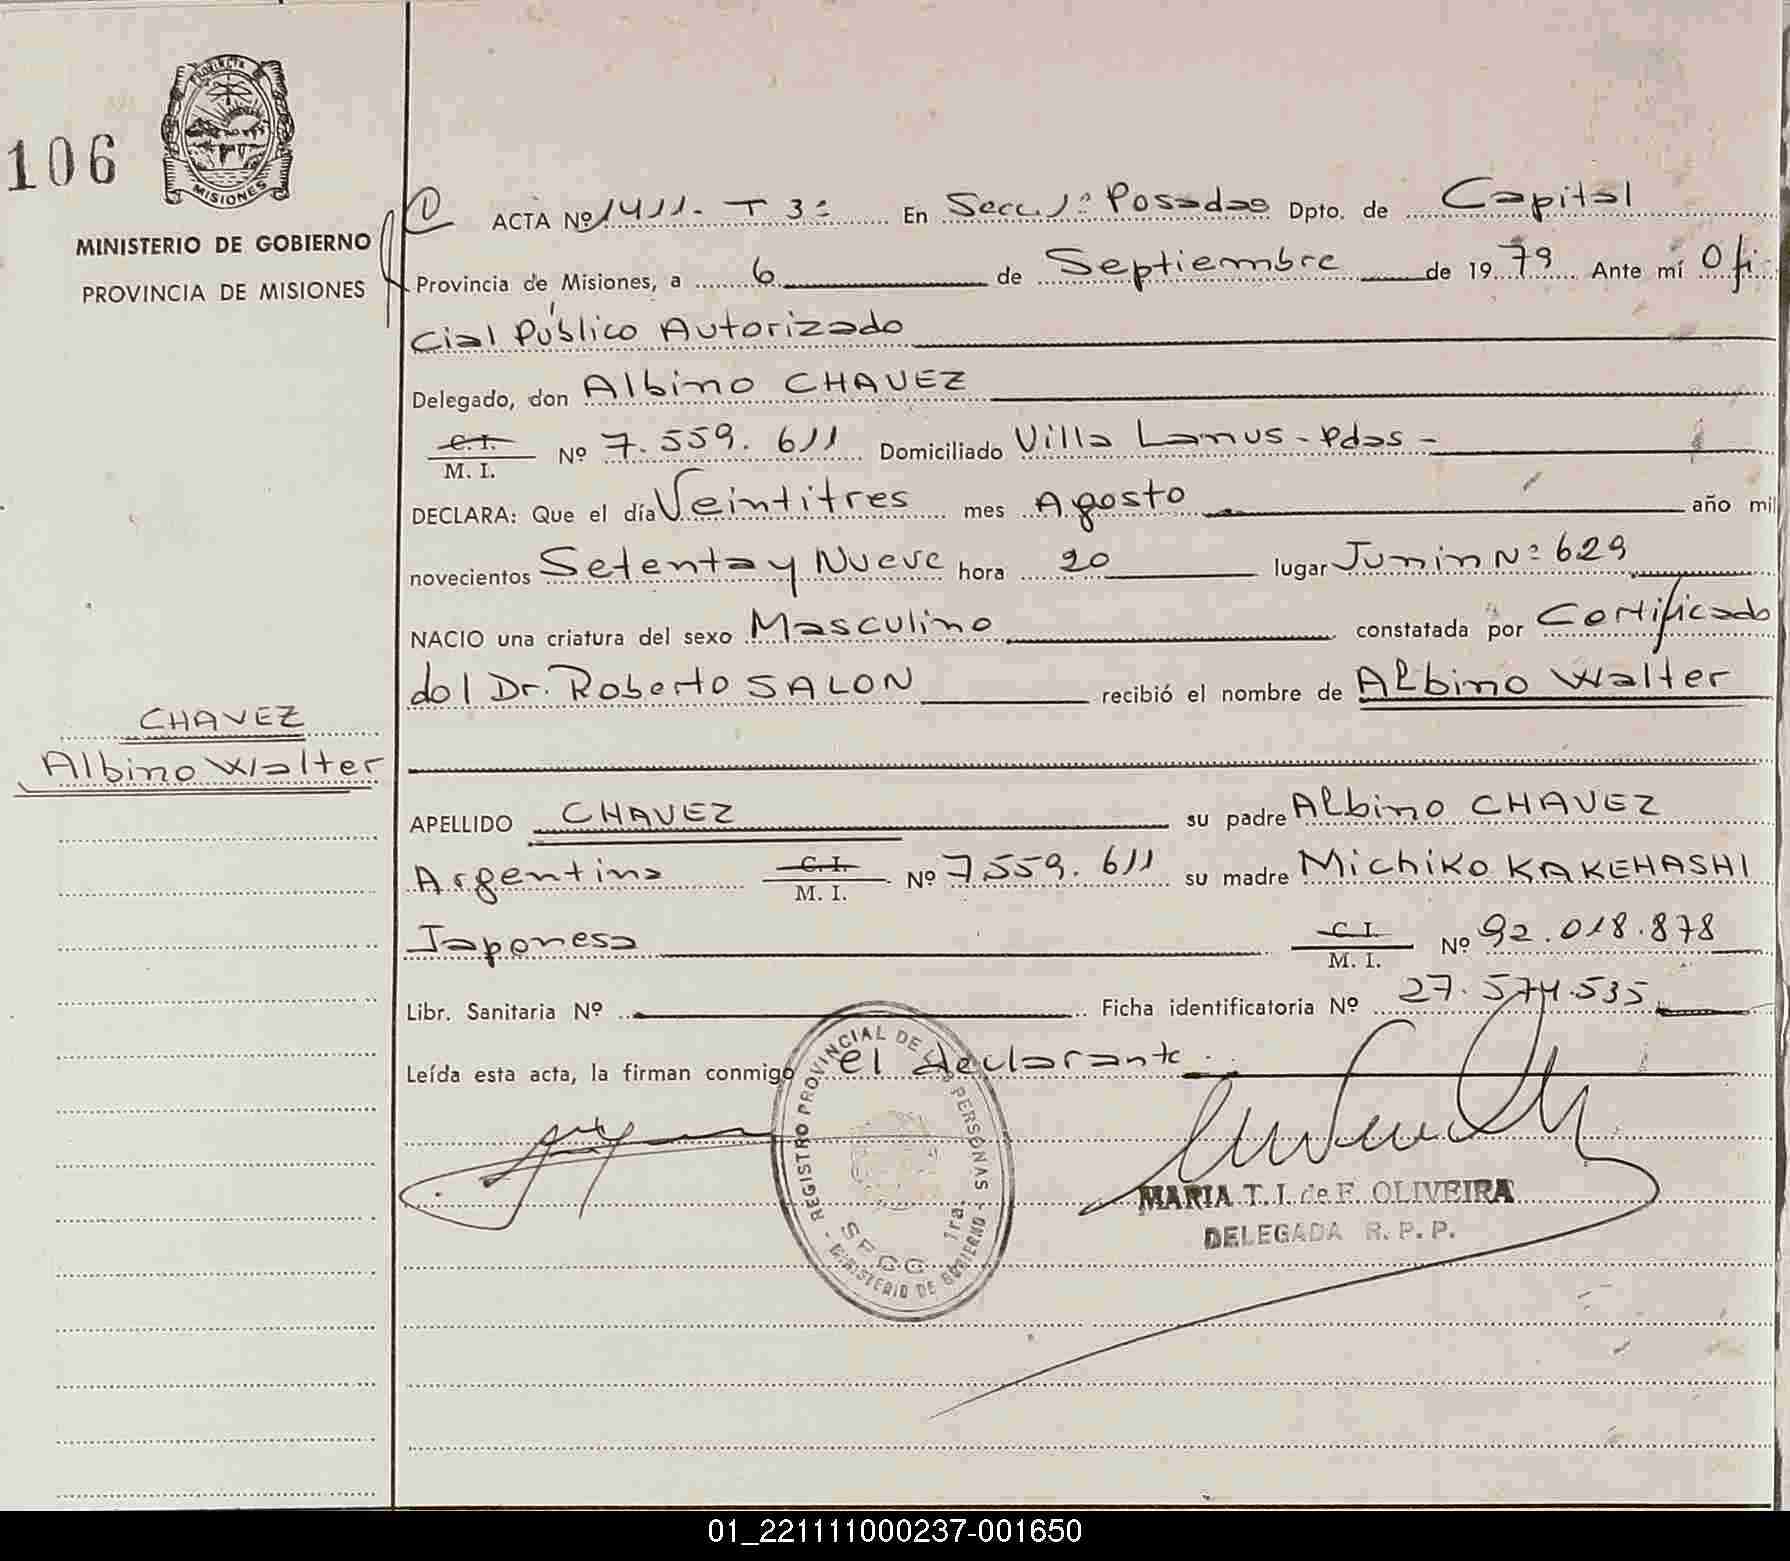 PROVINCIA DE
MISIONES
106
MINISTERIO DE GOBIERNO
PROVINCIA DE MISIONES
CHAVEZ
Albino Walter
ACTA Nº 1411. T 3º En Secc. 1º Posadas Dpto. de Capital
Provincia de Misiones, a 6 de Septiembre de 1979 Ante mí Ofi
cial Público Autorizado
Delegado, don Albino CHAVEZ
C. I.
M. I. Nº 7.559.611 Domiciliado Villa Lanus - Pdas -
DECLARA: Que el día Veintitres mes Agosto año mil
novecientos Setenta y Nueve hora 20 lugar Junin Nº 629
NACIO una criatura del sexo Masculino constatada por Certificado
del Dr. Roberto SALON recibió el nombre de Albino Walter
APELLIDO CHAVEZ su padre Albino CHAVEZ
Argentina C. I. M. I. Nº 7.559.611 su madre Michiko KAKEHASHI
Japonesa C. I. M. I. Nº 92.018.878
Libr. Sanitaria Nº Ficha identificatoria Nº 27.574.535
Leída esta acta, la firman conmigo el declarante.
REGISTRO PROVINCIAL DE LAS PERSONAS
SECC. 1ra.
MINISTERIO DE GOBIERNO
MARIA T. I. de F. OLIVEIRA
DELEGADA R. P. P.
01_221111000237-001650